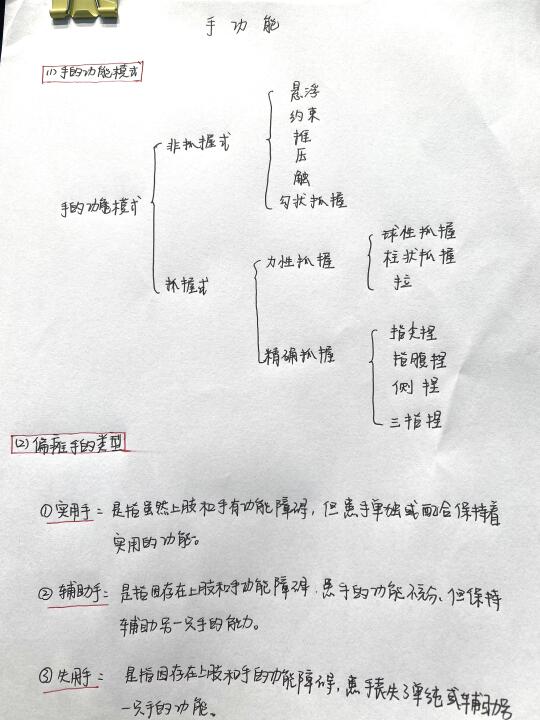 手功能
(1)手的功能模式
手的功能模式
非抓握式
悬浮
约束
推
压
触
勾状抓握
抓握式
力性抓握
球性抓握
柱状抓握
拉
精确抓握
指尖捏
指腹捏
侧捏
三指捏
(2)偏瘫手的类型
①实用手：是指虽然上肢和手有功能障碍，但患手单独或配合保持着
实用的功能。
②辅助手：是指因存在上肢和手功能障碍，患手的功能不充分，但保持
辅助另一只手的能力。
③失用手：是指因存在上肢和手的功能障碍，患手丧失了单纯或辅助另
一只手的功能。